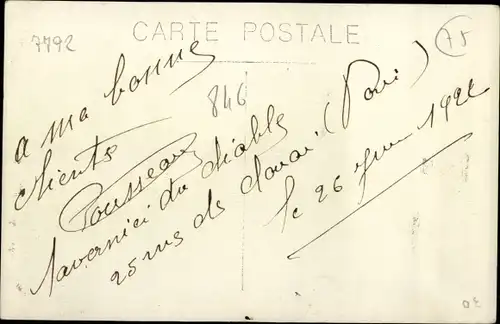 7792
CARTE POSTALE
75
846
a ma bonne
cliente
Rousseau
Tavernier du diable
25 rue de Douai (Paris)
le 26 1922